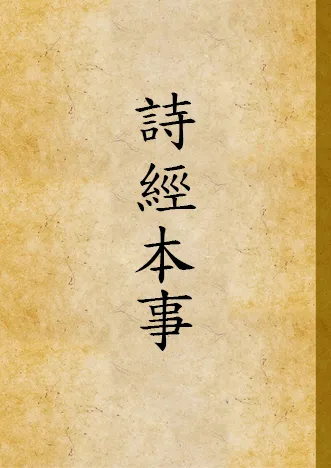 詩經本事